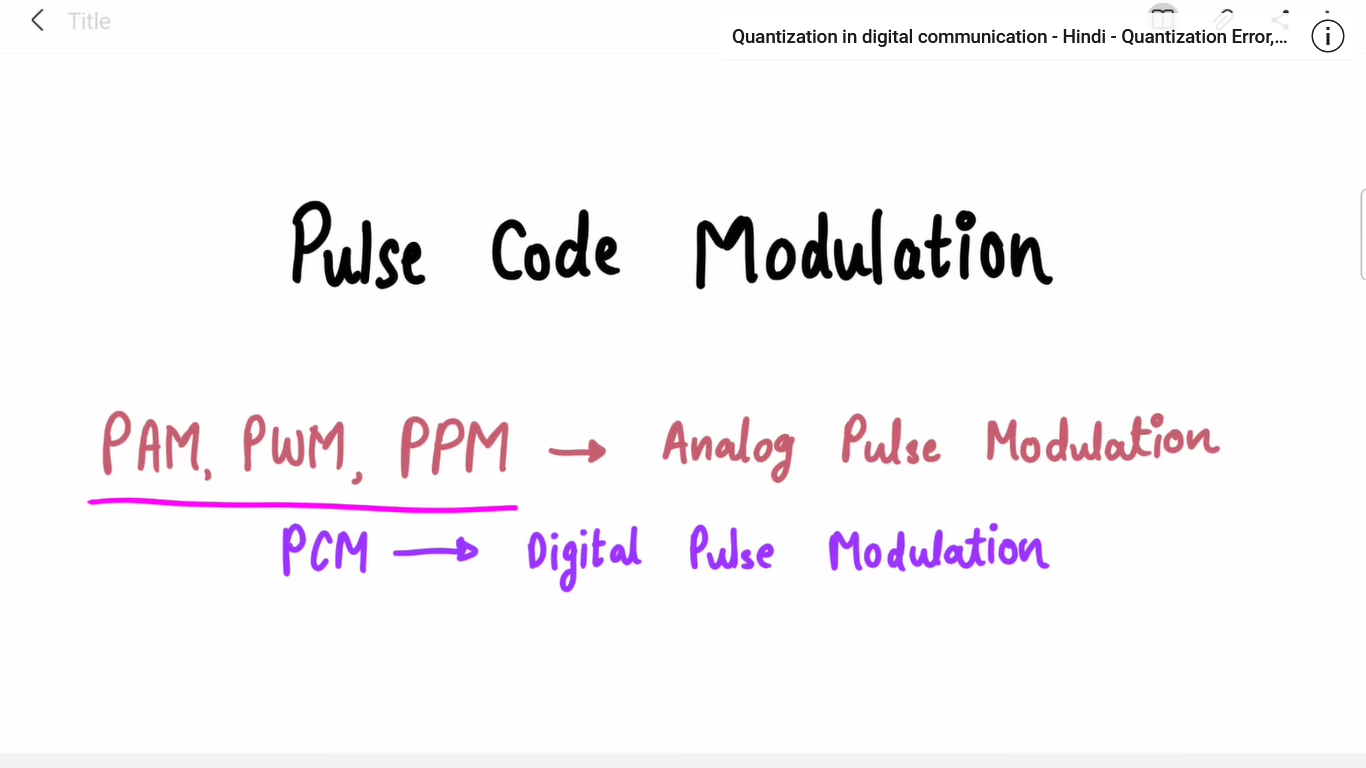 Title
Quantization in digital communication - Hindi - Quantization Error,...
Pulse Code Modulation
PAM, PWM, PPM → Analog Pulse Modulation
PCM → Digital Pulse Modulation